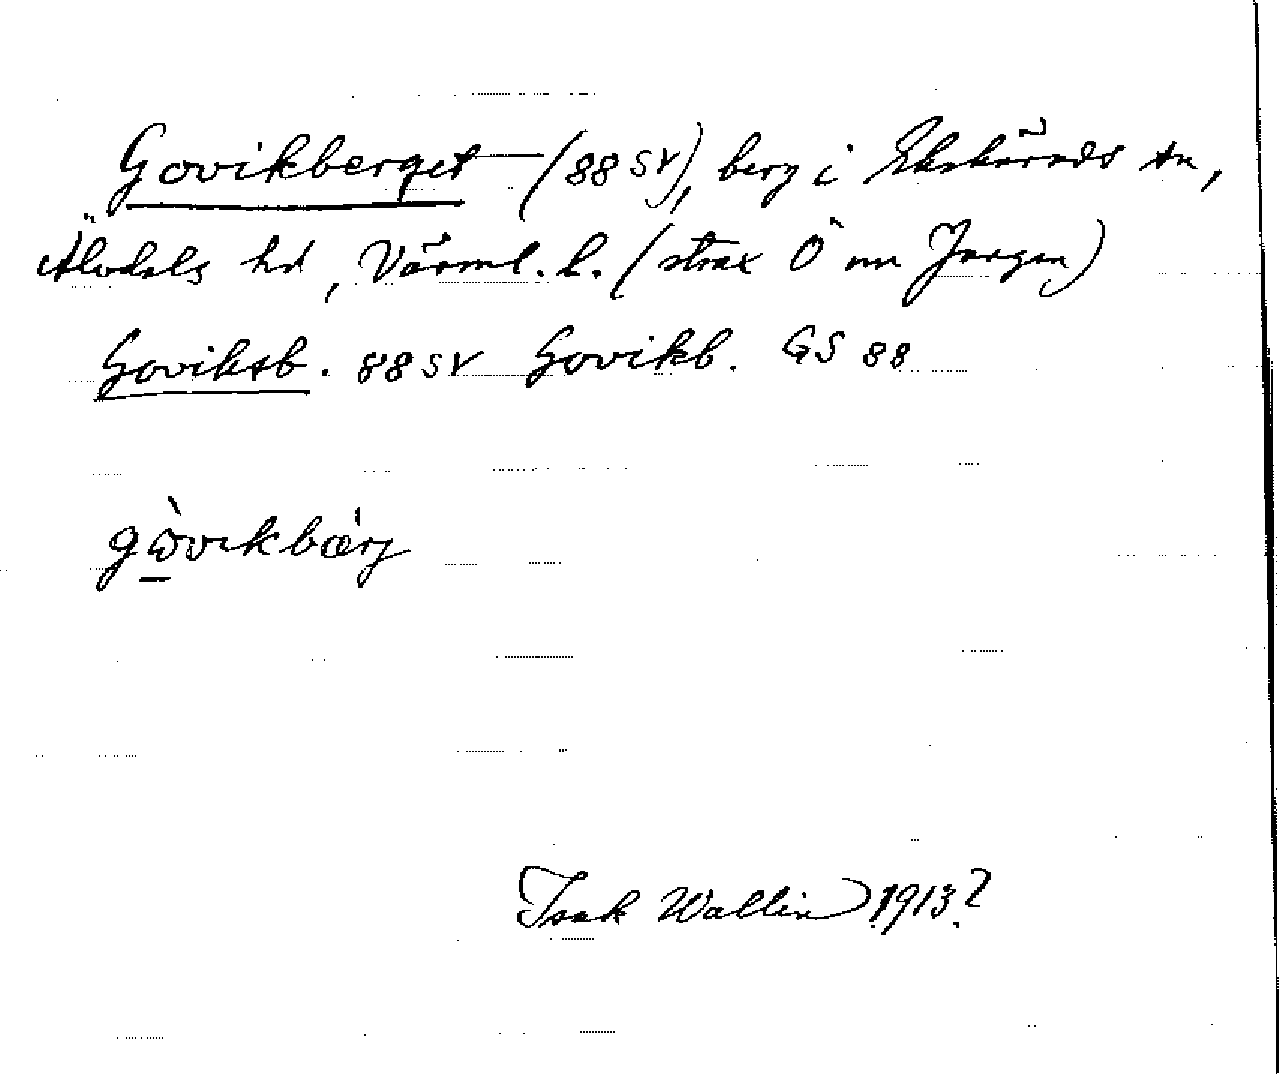 Govikberget (88 SV), berg i Ekshärads sn,
Älvdals hd, Värml. l. (strax Ö om Jangen)
Goviksb. 88 SV Govikb. GS 88
gòvikbæ̀rj
Isak Wallin 1913?